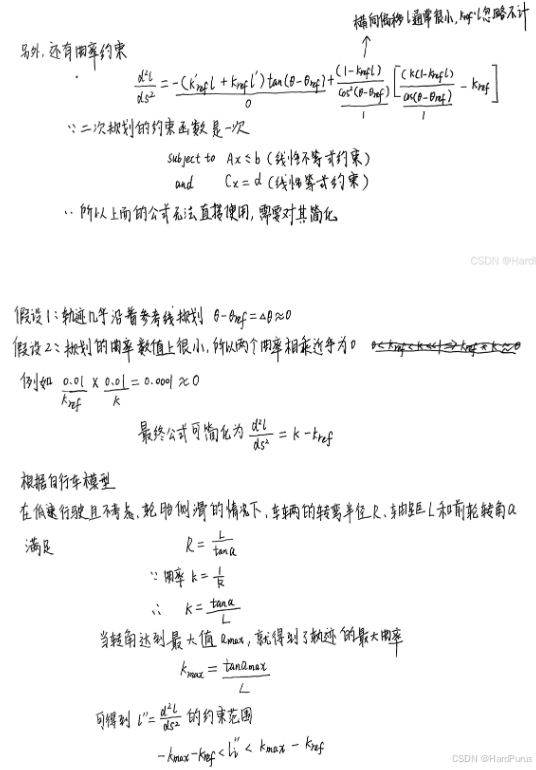 横向偏移l通常很小, kref·l忽略不计
另外, 还有曲率约束
d²l/ds² = -(k'ref l + kref l') tan(θ-θref) + (1-kref l)/cos²(θ-θref) [(k(1-kref l)/cos(θ-θref) - kref]
0 1 1
∵ 二次规划的约束函数是一次
subject to Ax ≤ b (线性不等式约束)
and Cx = d (线性等式约束)
∴ 所以上面的公式无法直接使用, 需要对其简化
CSDN @Hard
假设1: 轨迹几乎沿着参考线规划 θ-θref = Δθ ≈ 0
假设2: 规划的曲率数值上很小, 所以两个曲率相乘近乎为0 0<kref<k<<1 ⇒ kref * k ≈ 0
例如 0.01/kref × 0.01/k = 0.0001 ≈ 0
最终公式可简化为 d²l/ds² = k - kref
根据自行车模型
在低速行驶且不考虑, 轮胎侧滑的情况下, 车辆的转弯半径R、轴距L和前轮转角a
满足 R = L/tana
∵ 曲率 k = 1/R
∴ k = tana/L
当转角达到最大值 amax, 就得到了轨迹的最大曲率
kmax = tanamax/L
可得到 l'' = d²l/ds² 的约束范围
-kmax - kref < li'' < kmax - kref
CSDN @HardPurus